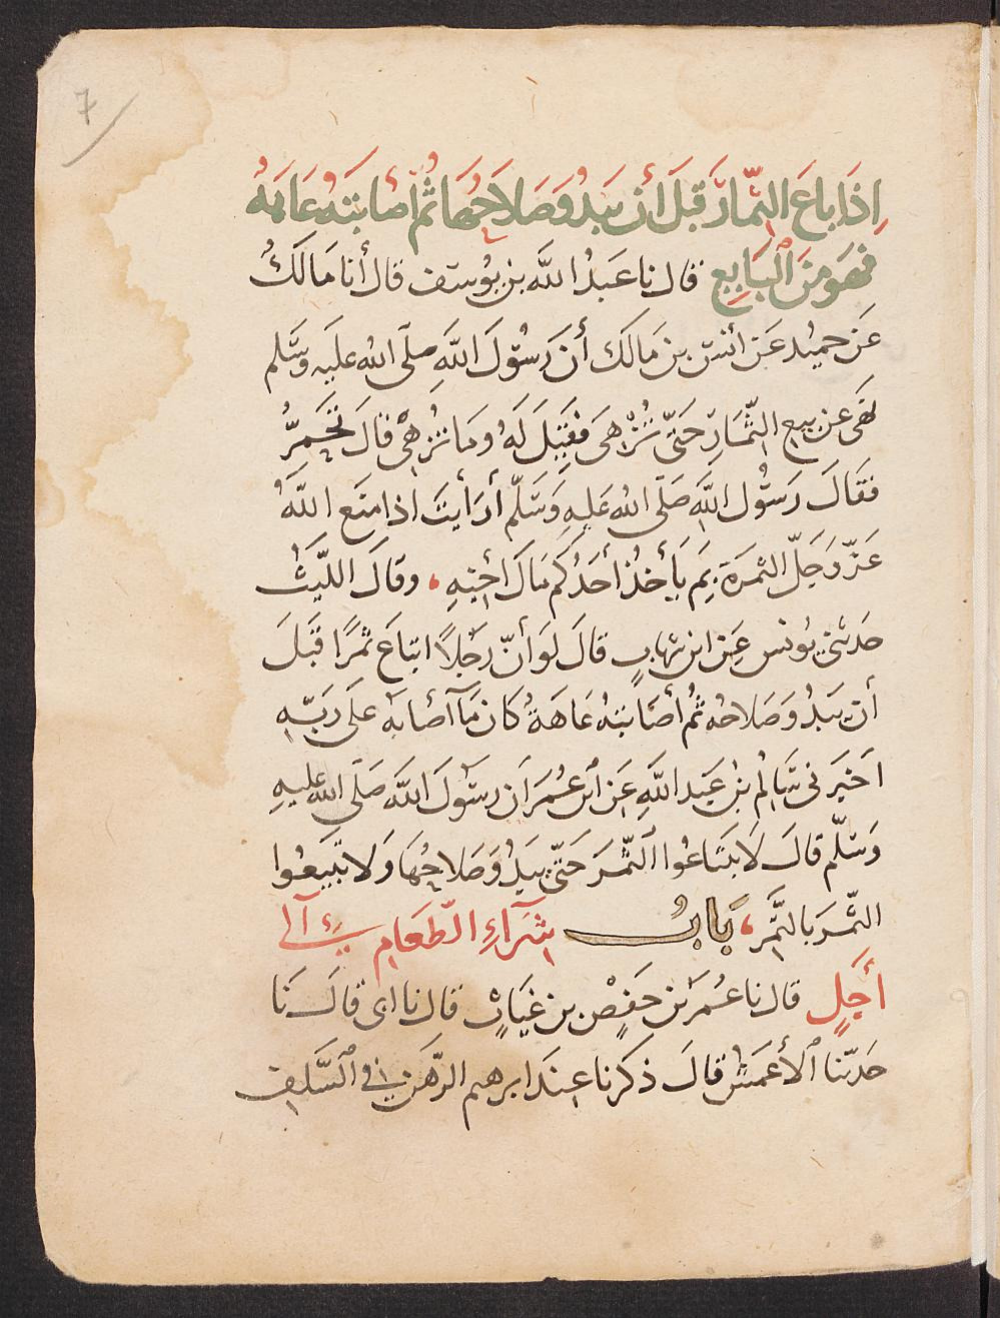 7
إِذَا بَاعَ الثِّمَارَ قَبْلَ أَن يَبْدُوَ صَلَاحُهَا ثُمَّ أَصَابَتْهُ عَاهَةٌ
فَهوَ مِنَ ٱلْبَايِعِ قال نا عَبدُ اللَّه بن يُوسف قال أنا مَالكٌ
عَن حميْد عَن أنسِ بن مالك أن رَسُولَ اللَّهِ صلّى الله علَيه وَسَّلم
نَهَى عن بيع الثّمَارِ حَتّى تُزْهىَ فَقِيلَ لَهُ وما تُزْهِىْ قالَ تَحْمَرُّ
فقَالَ رَسُول اللَّه صَلّى اللهُ عَليهِ وَسَلّم أرَأيتَ اذا منَع اللَّهُ
عَزّ وَجَلّ الثمرَةَ بِم يَأخُذ أحَدُكم مَالَ اخيْهِ ، وقالَ اللّيْثُ
حَدثني يُونس عَن ابن شِهابٍ قالَ لَوَ أنّ رَجُلاً ابتاعَ ثمرًا قبَلَ
أن يَبدُوَ صَلاحُه ثُم أصَابَتهُ عَاهَةٌ كان مَآ أصَابهُ علَى رَبّهِ
اخبَرَنى سَالمُ بنُ عَبدِ اللَّهِ عَن ابن عُمَرَ ان رسُولَ اللَّه صَلّى اللَّه عليهِ
وَسَلّم قالَ لا تبتَاعُوا الثّمرَ حَتّى يَبدُوَ صَلاحُهَا وَلا تَبِيعُوا
الثّمرَ بالتَّمْرِ ، بَابُ شِرَآءِ الطَّعَامِ إِلَى
أَجَلٍ قالَ نا عُمَرُ بن حَفصِ بن غيَاثٍ قالَ نا ابى قالَ نَا
حَدثنا الأعمَشُ قالَ ذكرنا عِندَ ابرهيم الرَّهَنَ في السَّلف